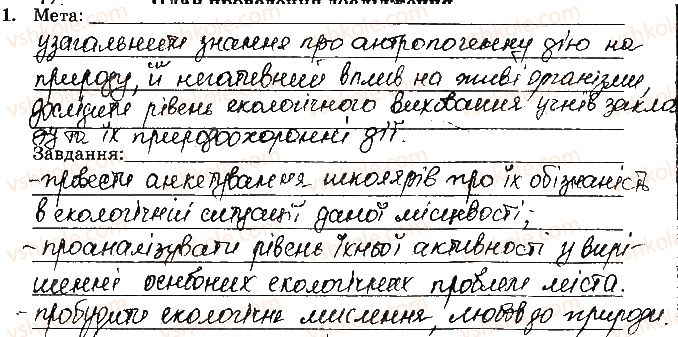 1. Мета:
узагальнити знання про антропогенну дію на
природу, їй негативний вплив на живі організми,
дослідити рівень екологічного виховання учнів закла
ду та їх природоохоронні дії.
Завдання:
- провести анкетування школярів про їх обізнаність
в екологічній ситуації даної місцевості;
- проаналізувати рівень їхньої активності у вирі-
шенні основних екологічних проблем міста.
- пробудити екологічне мислення, любов до природи.